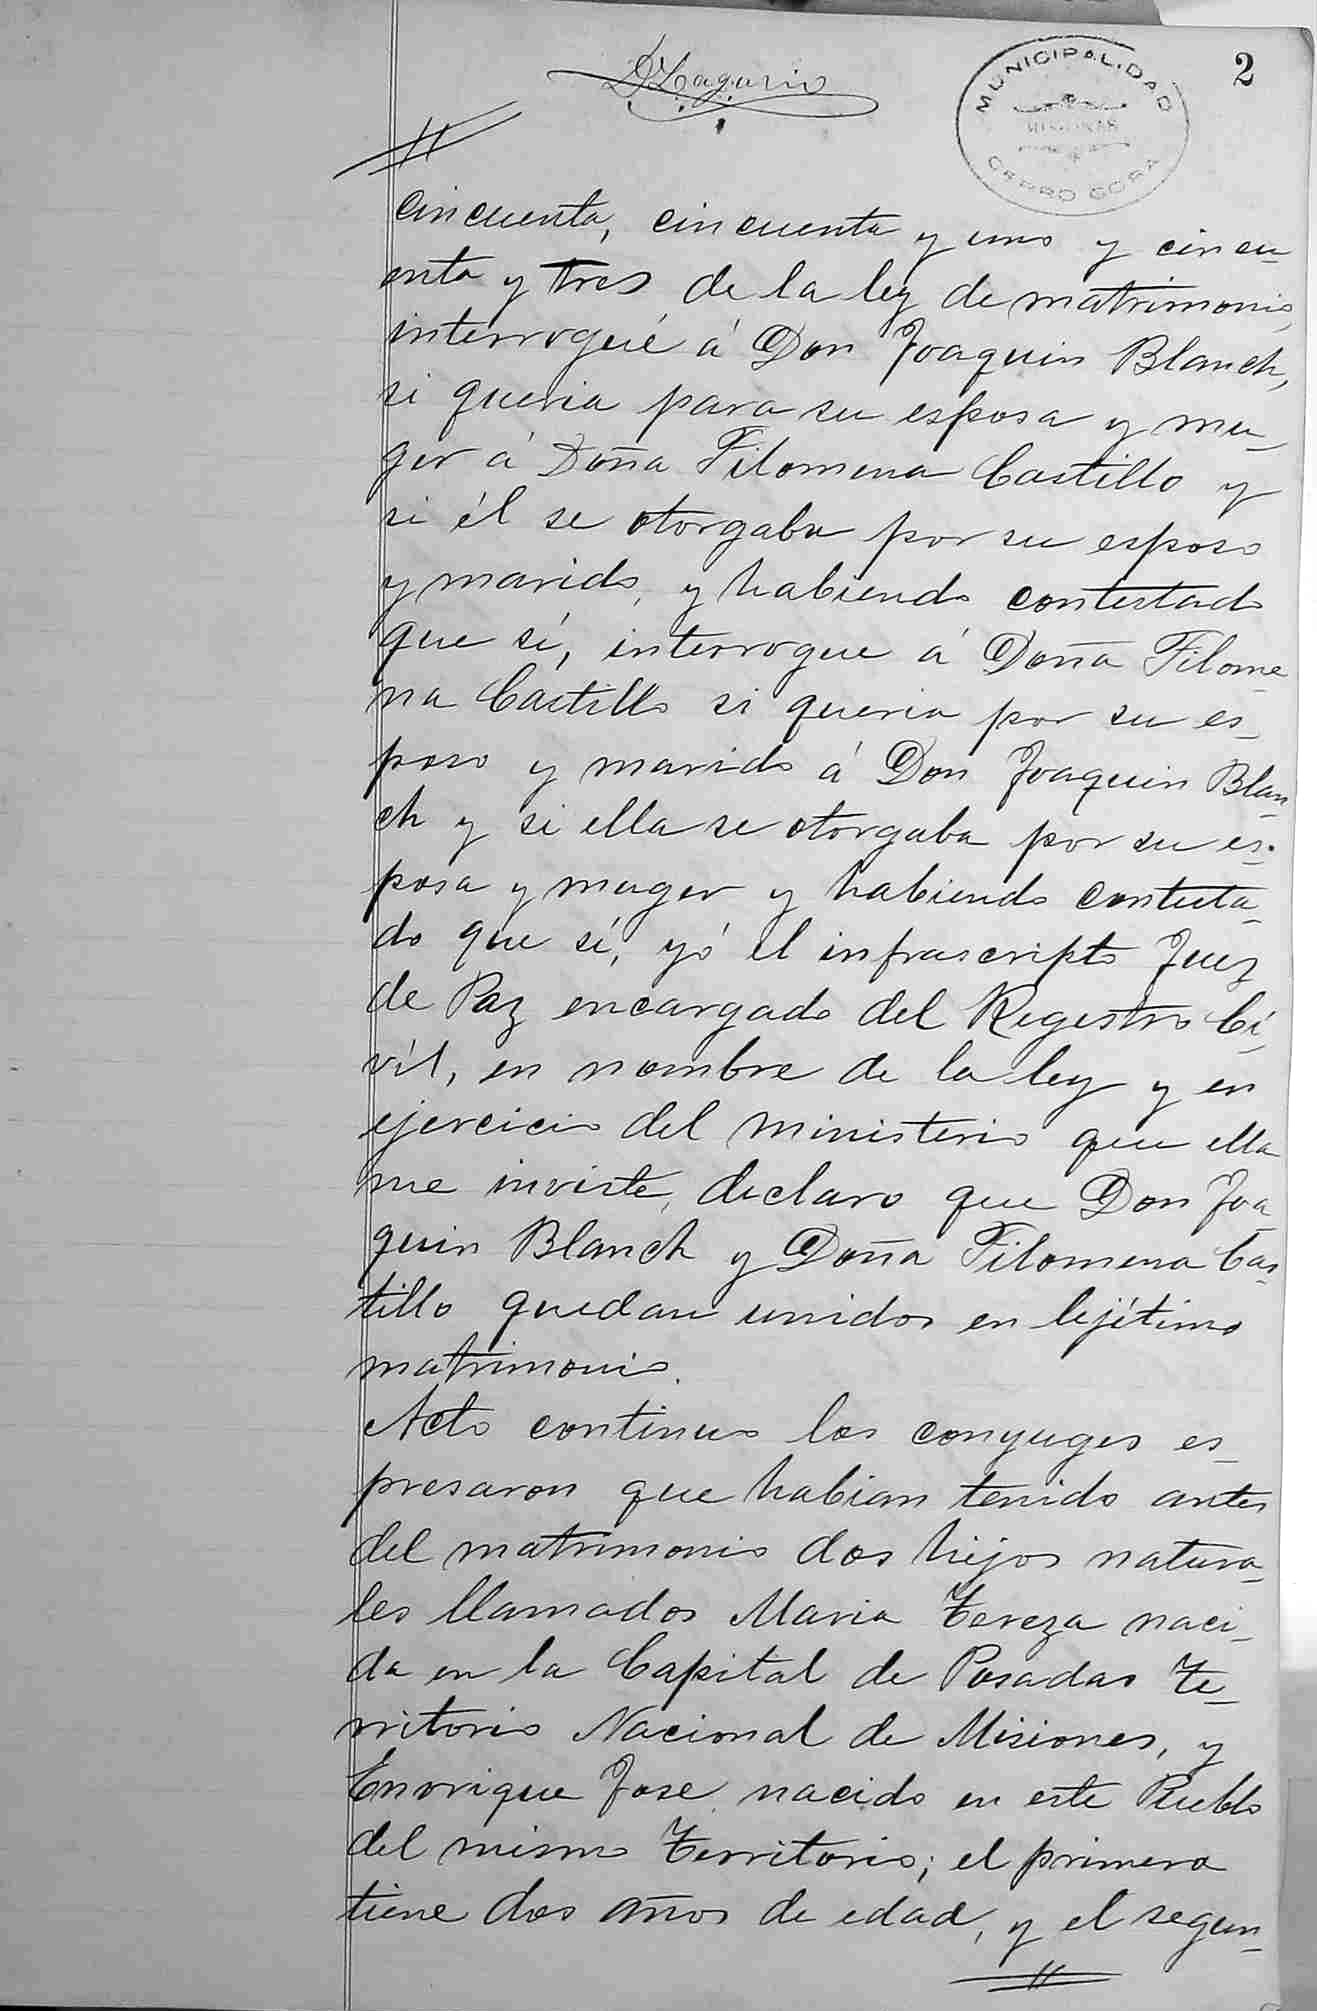 MUNICIPALIDAD
MISIONES
CERRO CORA
2
cincuenta, cincuenta y uno y cincu-
enta y tres de la ley de matrimonio,
interrogué á Don Joaquin Blanch,
si queria para su esposa y mu-
ger á Doña Filomena Castillo y
si él se otorgaba por su esposo
y marido, y habiendo contestado
que sí, interrogue á Doña Filome-
na Castillo si queria por su es-
poso y marido á Don Joaquin Blan-
ch y si ella se otorgaba por su es-
posa y muger y habiendo contesta-
do que sí, yó el infrascripto Juez
de Paz encargado del Registro Cí-
víl, en nombre de la ley y en
ejercicio del ministerio que ella
me inviste, declaro que Don Joa-
quin Blanch y Doña Filomena Cas-
tillo quedan unidos en lejítimo
matrimonio.
Acto continuo los conyuges es-
presaron que habian tenido antes
del matrimonio dos hijos natura-
les llamados Maria Tereza naci-
da en la Capital de Posadas Te-
rritorio Nacional de Misiones, y
Enrrique Jose nacido en este Pueblo
del mismo Territorio; el primero
tiene dos años de edad, y el segun-